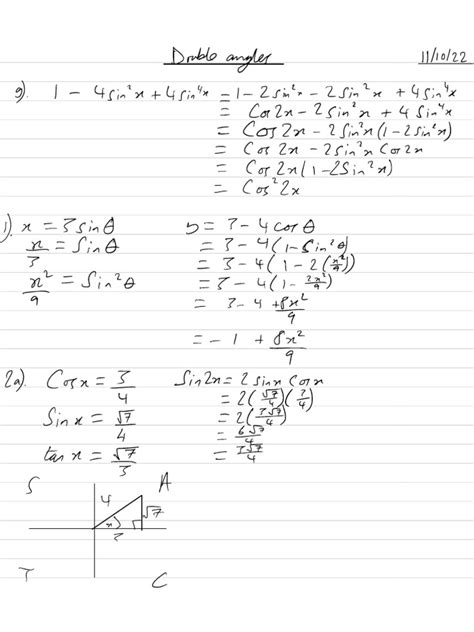 Double angles 11/10/22
g). 1 - 4sin²x + 4sin⁴x = 1 - 2sin²x - 2sin²x + 4sin⁴x
= Cos2x - 2sin²x + 4sin⁴x
= Cos2x - 2sin²x(1 - 2sin²x)
= Cos2x - 2sin²x Cos2x
= Cos2x(1 - 2sin²x)
= Cos²2x
1). x = 3sinθ y = 3 - 4cosθ
x/3 = sinθ = 3 - 4(1 - sin²θ)
x²/9 = sin²θ = 3 - 4(1 - 2(x²/9))
= 3 - 4(1 - 2x²/9)
= 3 - 4 + 8x²/9
= -1 + 8x²/9
2a). Cosx = 3/4 Sin2x = 2sinx Cosx
Sinx = √7/4 = 2(√7/4)(3/4)
= 2(3√7/4)
= 6√7/4
tanx = √7/3 = 3√7/4
S A
4 √7
x 3
T C